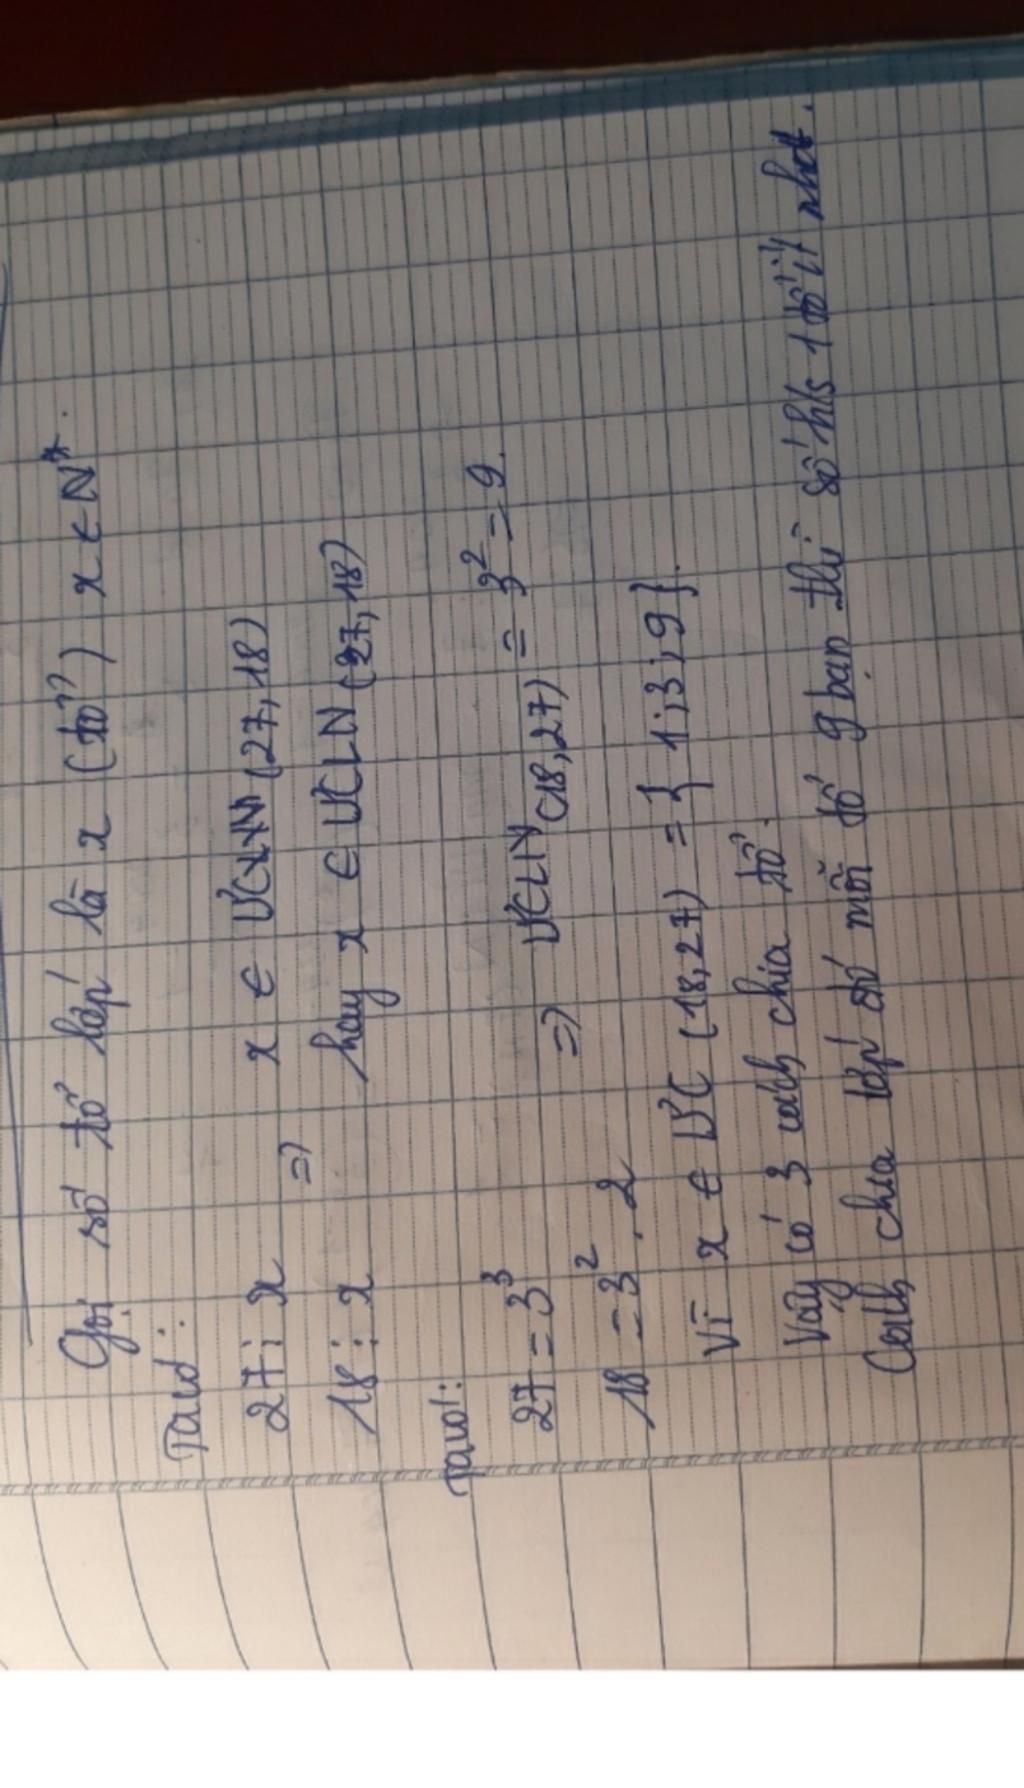 Gọi số tổ lớp là x (tổ) x ∈ N*.
Ta có:
27 ⋮ x
⇒ x ∈ ƯC (27, 18)
18 ⋮ x
hay x ∈ ƯCLN (27, 18)
Ta có:
27 = 3³
⇒ ƯCLN (18, 27) = 3² = 9.
18 = 3² . 2
Vì x ∈ ƯC (18, 27) = { 1; 3; 9 }.
Vậy có 3 cách chia tổ.
Cách chia lớp mỗi tổ 9 bạn thì số h/s 1 tổ ít nhất.